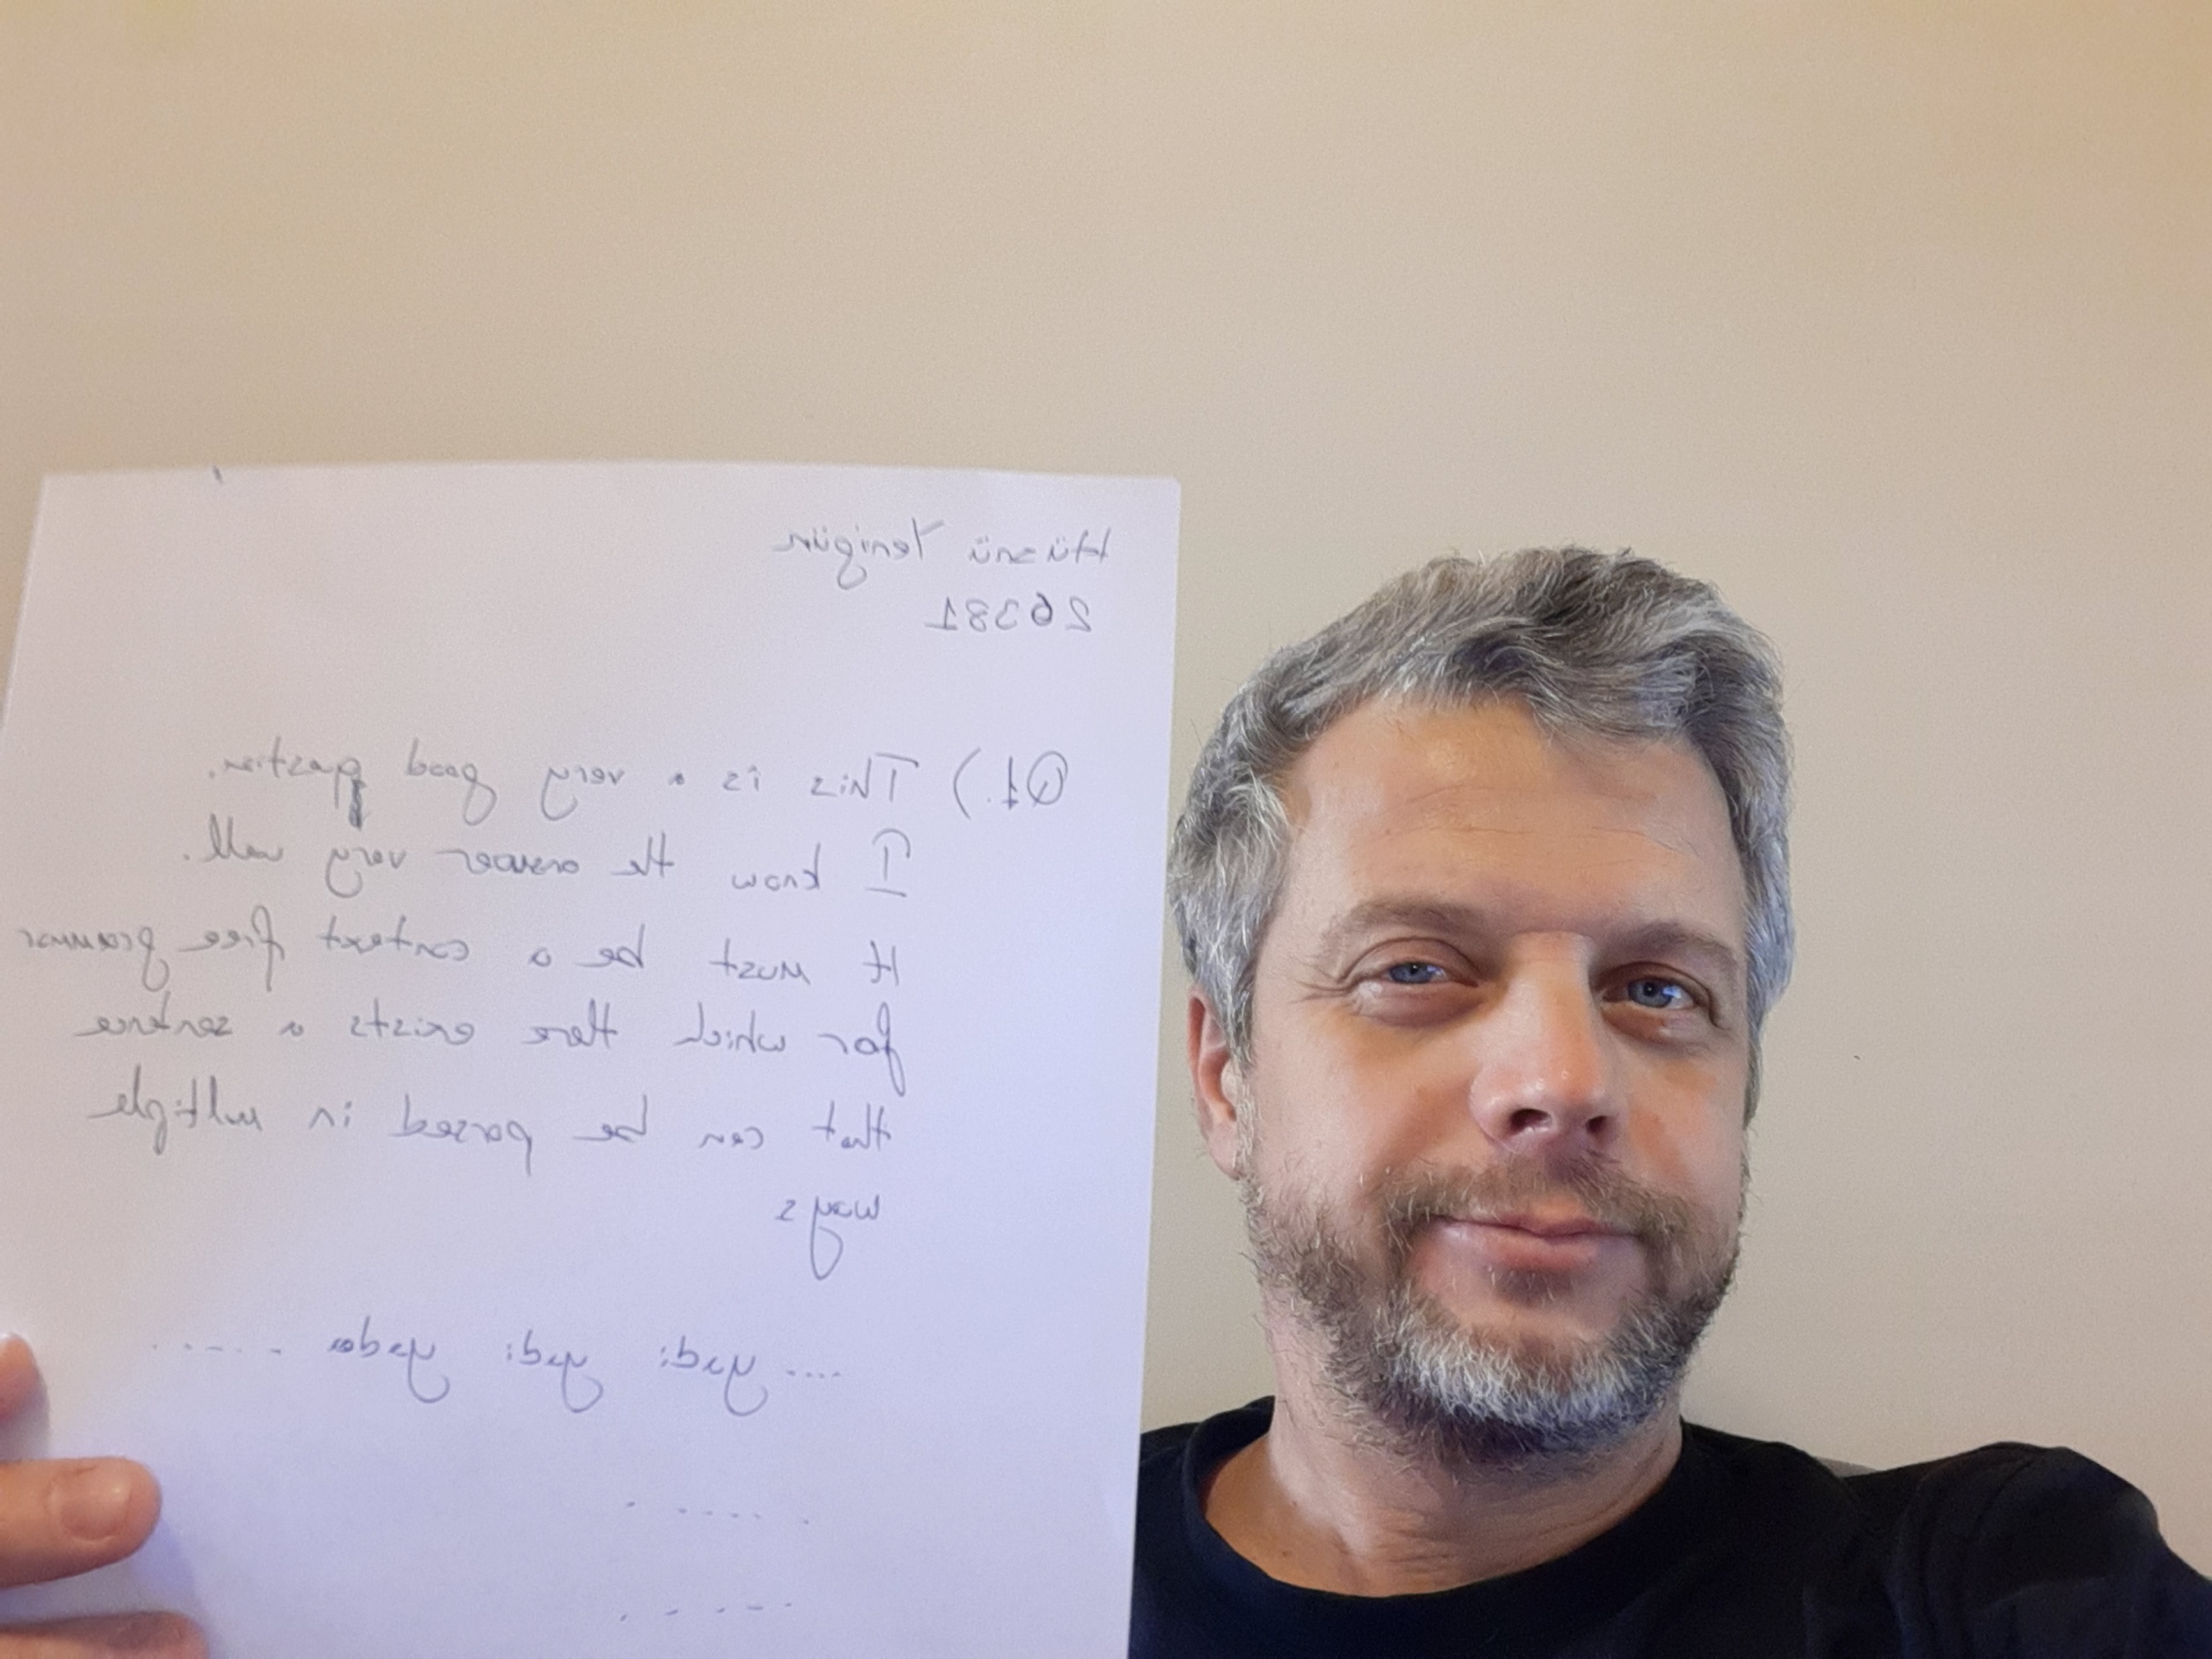 Hüsnü Yenigün
26381
Q1.) This is a very good question.
I know the answer very well.
It must be a context free grammar
for which there exists a sentence
that can be parsed in multiple
ways
.... yadi yadi yada ......
.....
.....